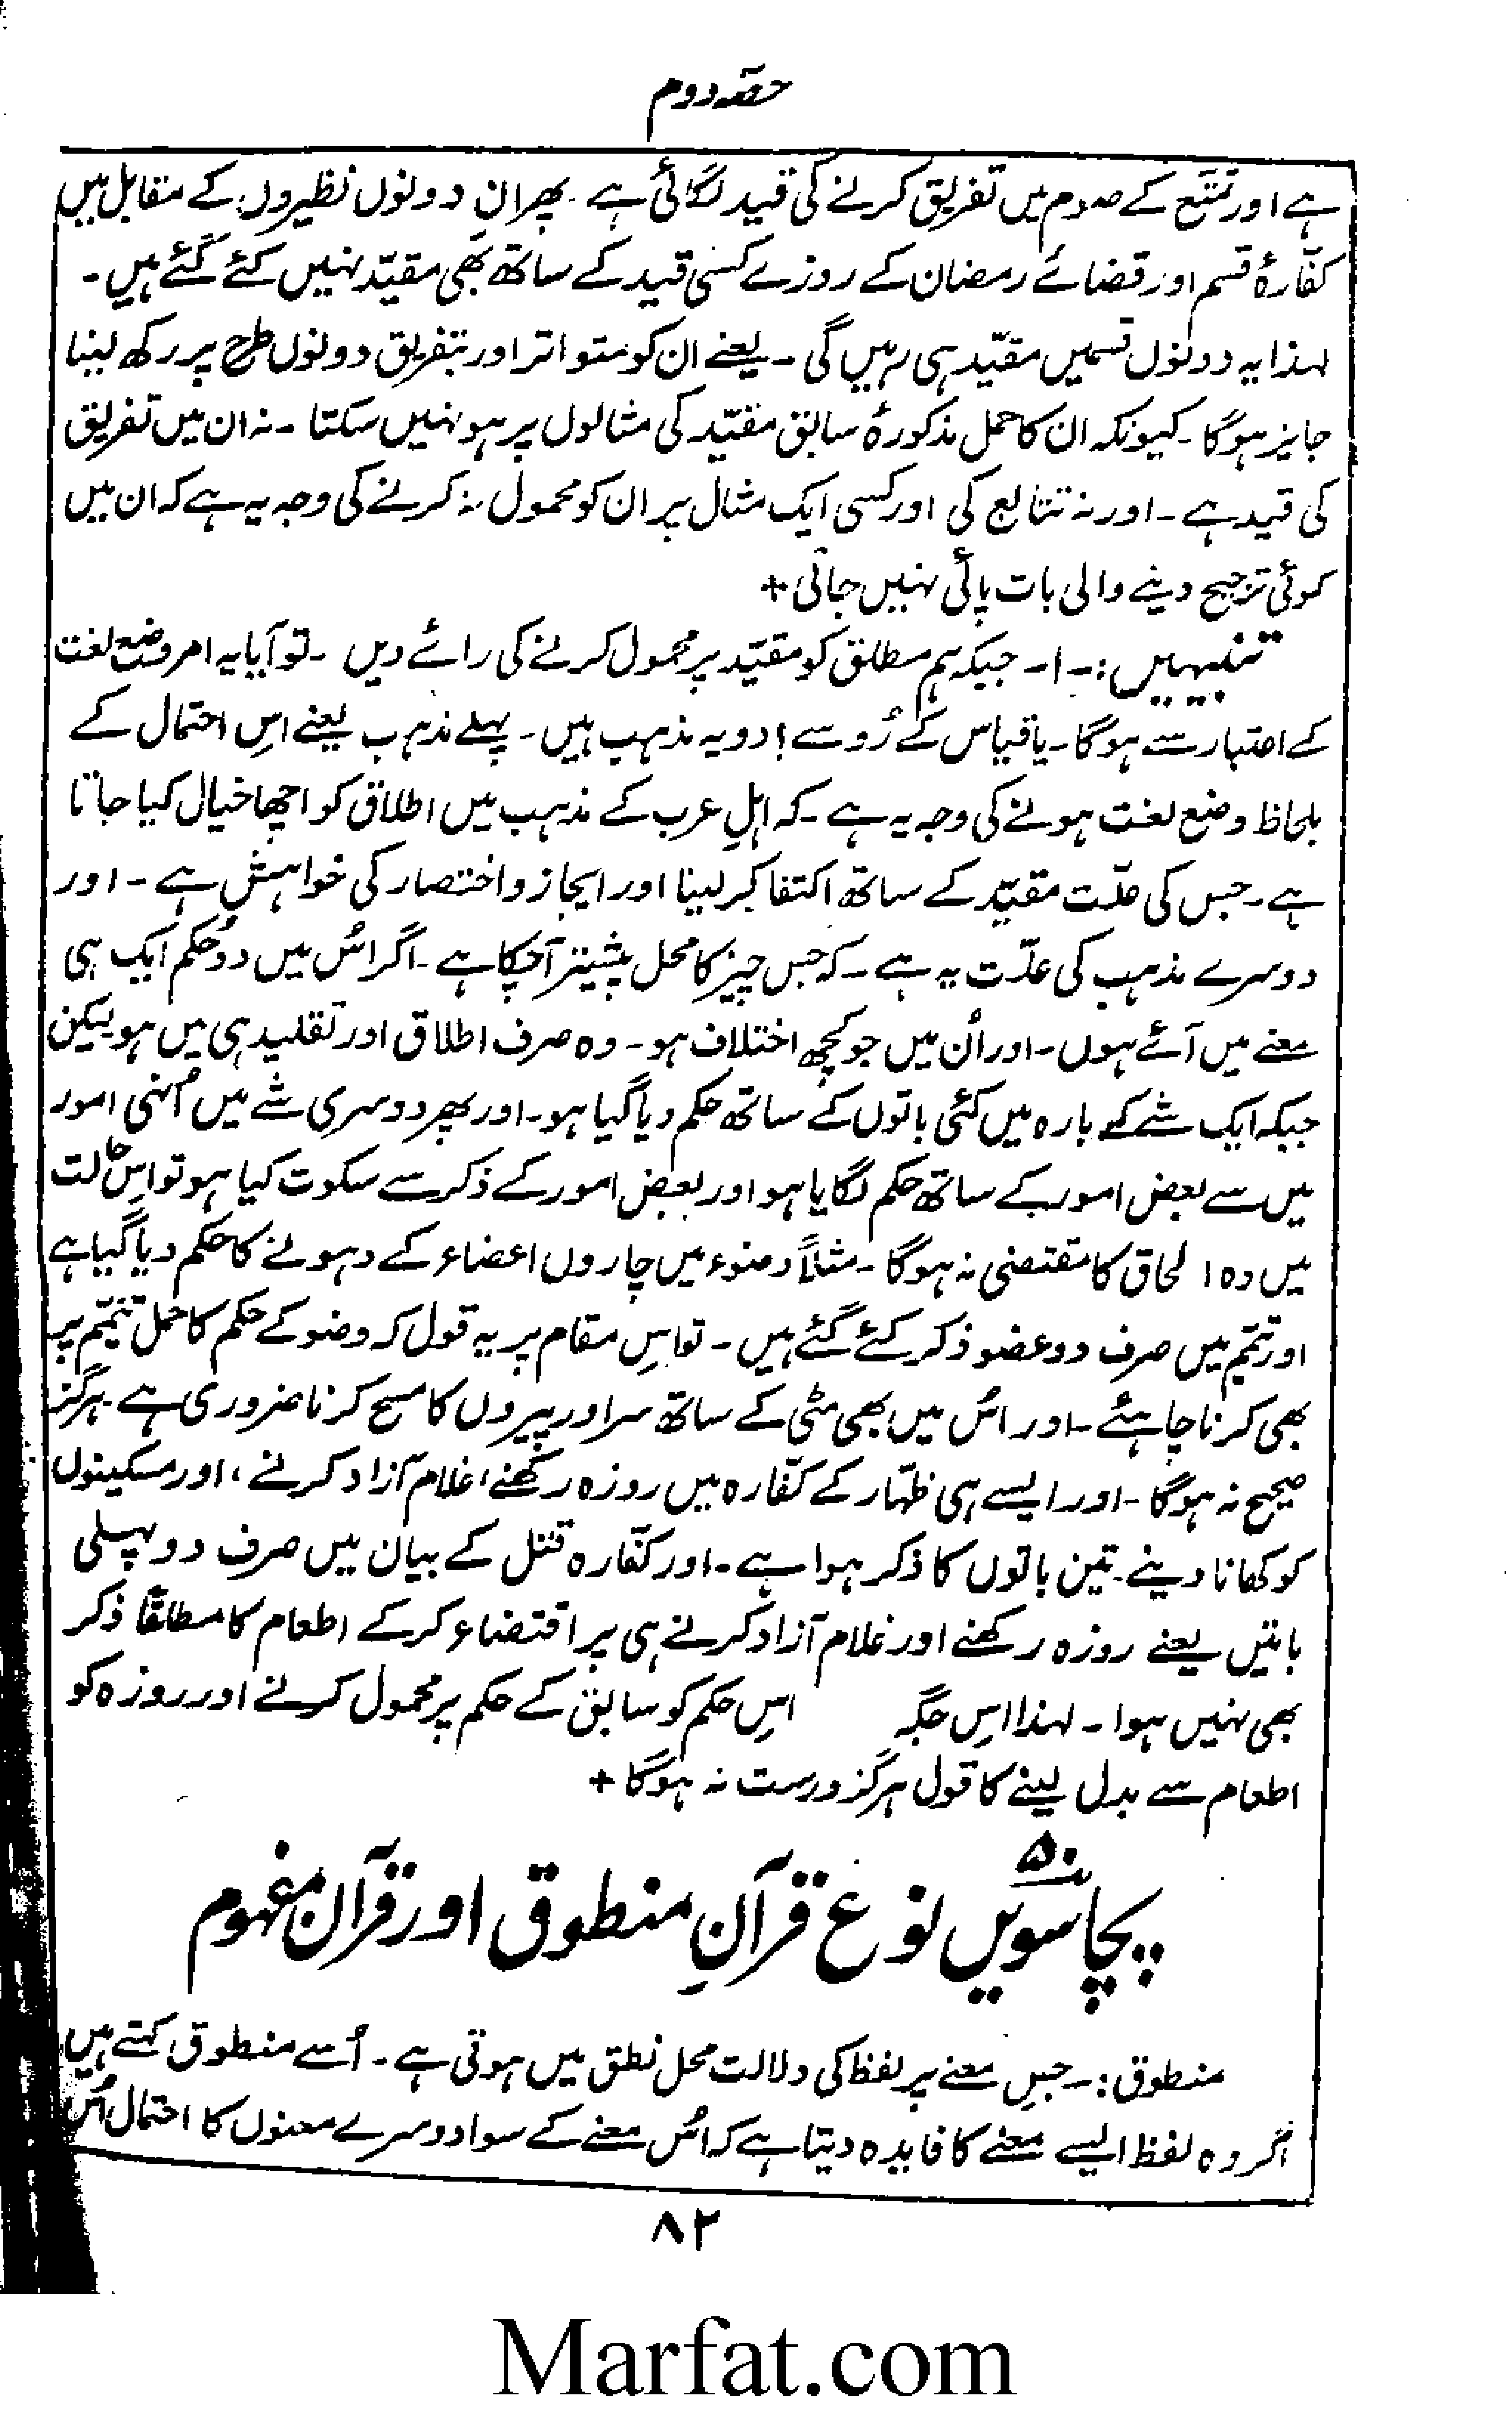 حصّہ دوم
ہے اور تمتّع کے صوم میں تفریق کرنے کی قید لگائی ہے ۔ پھر ان دونوں نظیروں کے مقابل میں
کفّارۂ قسم اور قضائے رمضان کے روزے کسی قید کے ساتھ بھی مقیّد نہیں کئے گئے ہیں ۔
لہذا یہ دونوں قسمیں مقیّد ہی رہیں گی ۔ یعنے ان کو متواتر اور بتفریق دونوں طرح پر رکھ لینا
جایز ہوگا ۔ کیونکہ ان کا حمل مذکورۂ سابق مقیّد کی مثالوں پر ہو نہیں سکتا ۔ نہ ان میں تفریق
کی قید ہے ۔ اور نہ تتابع کی اور کسی ایک مثال پر ان کو محمول نہ کرنے کی وجہ یہ ہے کہ ان میں
کوئی ترجیح دینے والی بات پائی نہیں جاتی +
تنبیہیں :۔ ۱۔ جبکہ ہم مطلق کو مقیّد پر محمول کرنے کی رائے دیں ۔ تو آیا یہ امر وضع لغت
کے اعتبار سے ہوگا ۔ یا قیاس کے رُو سے ؟ دو یہ مذہب ہیں ۔ پہلے مذہب یعنے اس احتمال کے
بلحاظ وضع لغت ہونے کی وجہ یہ ہے ۔ کہ اہلِ عرب کے مذہب میں اطلاق کو اچھا خیال کیا جاتا
ہے ۔ جس کی علّت مقیّد کے ساتھ اکتفا کر لینا اور ایجاز و اختصار کی خواہش ہے ۔ اور
دوسرے مذہب کی علّت یہ ہے ۔ کہ جس چیز کا محل پیشتر آچکا ہے ۔ اگر اُس میں دو حُکم ایک ہی
معنے میں آئے ہوں ۔ اور اُن میں جو کچھ اختلاف ہو ۔ وہ صرف اطلاق اور تقلید ہی میں ہو لیکن
جبکہ ایک شے کے بارہ میں کئی باتوں کے ساتھ حکم دیا گیا ہو ۔ اور پھر دوسری شے میں اُنہی امور
میں سے بعض امور کے ساتھ حکم لگایا ہو اور بعض امور کے ذکر سے سکوت کیا ہو تو اِس حالت
میں وہ الحاق کا مقتضی نہ ہوگا ۔ مثلاً وضوء میں چاروں اعضاء کے دہونے کا حکم دیا گیا ہے
اور تیمّم میں صرف دو عضو ذکر کئے گئے ہیں ۔ تو اس مقام پر یہ قول کہ وضو کے حکم کا حمل تیمّم پر
بھی کرنا چاہئے ۔ اور اس میں بھی مٹی کے ساتھ سر اور پیروں کا مسح کرنا ضروری ہے ۔ ہرگز
صحیح نہ ہوگا ۔ اور ایسے ہی ظہار کے کفّارہ میں روزہ رکھنے ، غلام آزاد کرنے ، اور مسکینوں
کو کھانا دینے ۔ تین باتوں کا ذکر ہوا ہے ۔ اور کفّارہ قتل کے بیان میں صرف دو پہلی
باتیں یعنے روزہ رکھنے اور غلام آزاد کرنے ہی پر اقتضاء کرکے اطعام کا مطلقًا ذکر
بھی نہیں ہوا ۔ لہذا اِس جگہ اِس حکم کو سابق کے حکم پر محمول کرنے اور روزہ کو
اطعام سے بدل لینے کا قول ہرگز درست نہ ہوگا +
۵۰
پچاسویں نوع قرآنِ منطوق اور قرآن مفہوم
منطوق :۔ جس معنے پر لفظ کی دلالت محل نطق میں ہوتی ہے ۔ اُسے منطوق کہتے ہیں
اگر وہ لفظ ایسے معنے کا فایدہ دیتا ہے کہ اُس معنے کے سوا دوسرے معنوں کا احتمال اُس
۸۲
Marfat.com